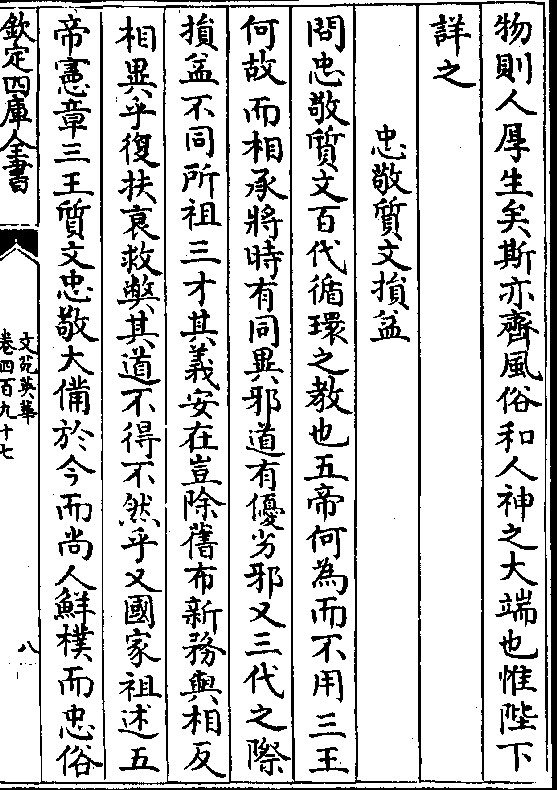 物則人厚生矣斯亦齊風俗和人神之大端也惟陛下
詳之
忠敬質文損益
問忠敬質文百代循環之教也五帝何為而不用三王
何故而相承將時有同異邪道有優劣邪又三代之際
損益不同所祖三才其義安在豈除舊布新務與相反
相異乎復扶衰救弊其道不得不然乎又國家祖述五
帝憲章三王質文忠敬大備於今而尚人鮮樸而忠俗
欽定四庫全書
文苑英華
卷四百九十七
八